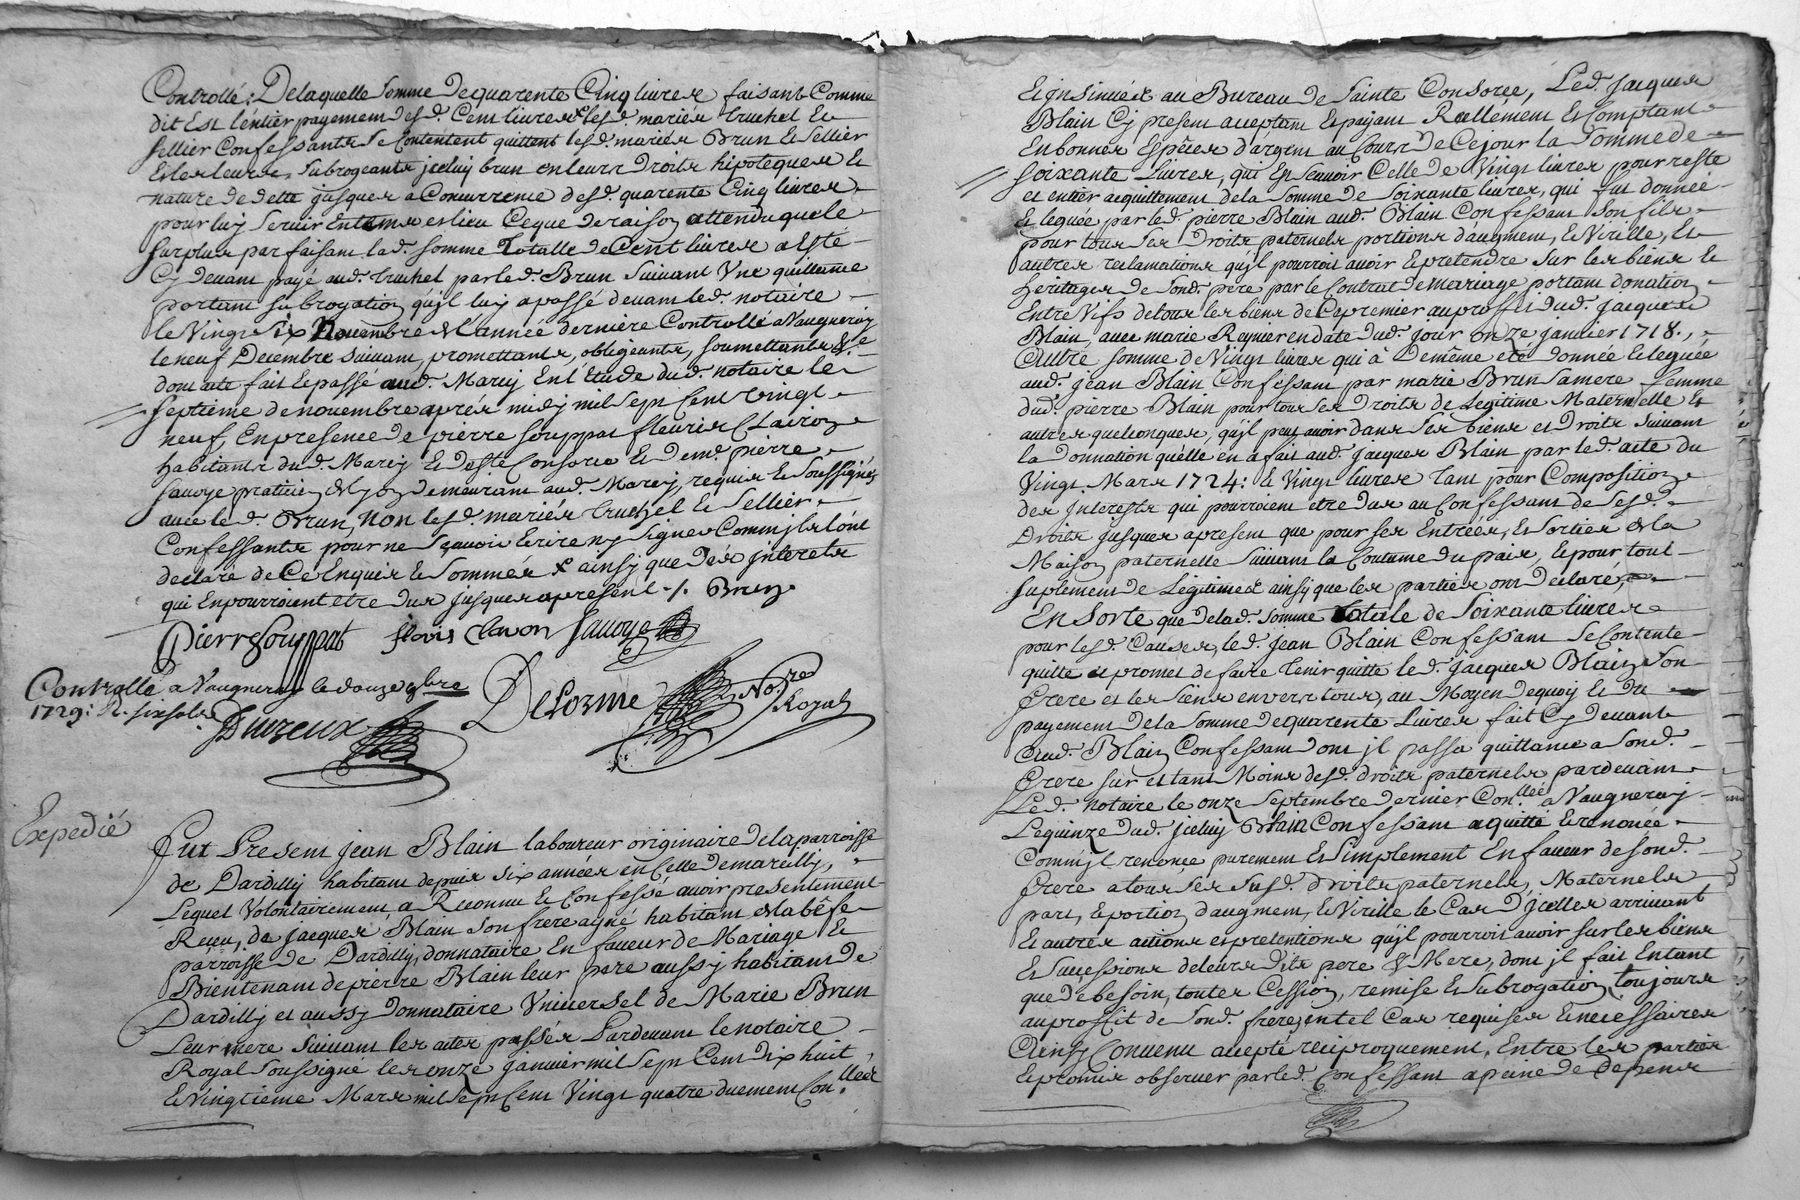 Controllé; De laquelle Somme de quarente Cinq livres faisant Comme
dit Est l'entier payement desd. Cent livres lesd. mariés Truchet Et
Sellier Confessants Se Contentent quittent lesd. mariés Brun Et Sellier
Et les leurs, Subrogeants jceluy brun en leurs Droits hipoteques Et
nature de dette jusques a Concurrence desd. quarente Cinq livres
pour luy Servir En tems et lieu Ceque de raison attendu que le
Surplus parfaisant lad. Somme Totalle de Cent livres a Esté
Cy devant payé aud. Truchet par led. Brun Suivant Une quittance
portant Subrogation qu'jl luy a passé devant led. notaire
le Vingt Six Novembre de l'année dernière Controllé a Vaugneray
le neuf Decembre Suivant, promettants, obligeants, Soumettants &c
dont acte fait Et passé aud. Marcy En l'Etude dud. notaire le
Septieme de novembre aprés midy mil Sept Cent Vingt
neuf, En presence de pierre Souppat fleuris Clairon
habitants dud. Marcy Et de Ste Consorce Et de me. pierre
Savoye praticien de Lyon demeurant aud. Marcy, requis Et Soussignés
avec led. Brun, non lesd. mariés Truchet Et Sellier
Confessants pour ne Sçavoir Ecrire ny Signer Comm'jls l'ont
declaré de Ce Enquis Et Sommés & ainsy que des jnterets
qui En pourroient etre dus jusques apresent ./. Brun
Pierre Souppat floris Clavon Savoye
Controllé a Vaugneray le douze 9bre
1729: R. six sols
Duvreux
Delorme Nore Royal
Expedié
Fut Present jean Blain laboureur originaire de la parroisse
de Dardilly habitant depuis Six années en Celle de marcilly,
Lequel Volontairement a Reconnu Et Confessé avoir présentement
Receu, de jacques Blain Son frere ayné habitant de la bêfe
parroisse de Dardilly, donnataire En faveur de Mariage Et
Bientenant de pierre Blain leur pere aussy habitant de
Dardilly et aussy donnataire Vniversel de Marie Brun
Leur mere Suivant les actes passés Pardevant le notaire
Royal Soussigné les onze janvier mil Sept Cent dix huit,
Et Vingtieme Mars mil Sept Cent Vingt quatre duement Con.llées
Et jnsinuées au Bureau de Sainte Consorce, Led. Jacques
Blain Cy present acceptant Et payant Réellement Et Comptant
En bonnes Espèces d'argent au Cours de Cejour la Somme de
Soixante Livres, qui Est Scavoir Celle de Vingt livres pour reste
et entier acquittement de la Somme de Soixante livres, qui fut donnée
Et leguée par led. pierre Blain aud. Blain Confessant Son fils
pour tous Ses Droits paternels portions d'augment, Et Virille, Et
autres reclamations qu'jl pourroit avoir Et pretendre Sur les biens Et
heritages de Sond. pere par le Contrat de mariage portant donation
Entre Vifs de tous les biens de Ce premier au proffit dud. Jacques
Blain, avec marie Reynier en date dud. Jour onze janvier 1718.,
Autre Somme de Vingt livres qui a de même eté donnée Et leguée
aud. jean Blain Confessant par marie Brun Sa mere femme
dud. pierre Blain pour tous Ses Droits de Legitime Maternelle Et
autres quelconques, qu'jl peut avoir dans Ses biens et Droits Suivant
la Donnation quélle en a fait aud. Jacques Blain par led. acte du
Vingt Mars 1724: Et Vingt livres Tant pour Composition
des jnterests qui pourroient etre dus au Confessant de Sesd.
Droits jusques apresent que pour Ses Entrées, Et Sorties de la
Maison paternelle Suivant la Coutume du païs, Et pour tout
Suplement de Légitimes ainsy que les parties ont declaré,
En Sorte que de lad. Somme Totale de Soixante livres
pour lesd. Causes, led. jean Blain Confessant Se Contente
quitte et promet de faire Tenir quitte led. Jacques Blain Son
frere et les Siens envers tous, au Moyen dequoy Et du
payement de la Somme de quarente Livres fait Cy devant
aud. Blain Confessant dont jl passa quittance a Sond.
frere Sur et tant Moins desd. droits paternels pardevant
Led. notaire le onze Septembre dernier Con.llée a Vaugneray
Le quinze dud. jceluy Blain Confessant a quitté Et renoncé
Comm'jl renonce purement Et Simplement En faveur de Sond.
frere a tous Ses Susd. droits paternels, Maternels
part, Et portion d'augment, Et Virille le Cas d'jcelles arrivant
Et autres actions et pretentions qu'jl pourroit avoir Sur les biens
Et Successions de leurs dits pere & Mere, dont jl fait Entant
que de besoin, toutes Cession, remise Et Subrogation, toujours
au proffit de Sond. frere, en tel Cas requises Et necessaires
Ainsy Convenu accepté reciproquement, Entre les parties
Et promis observer par led. Confessant a peine de depens